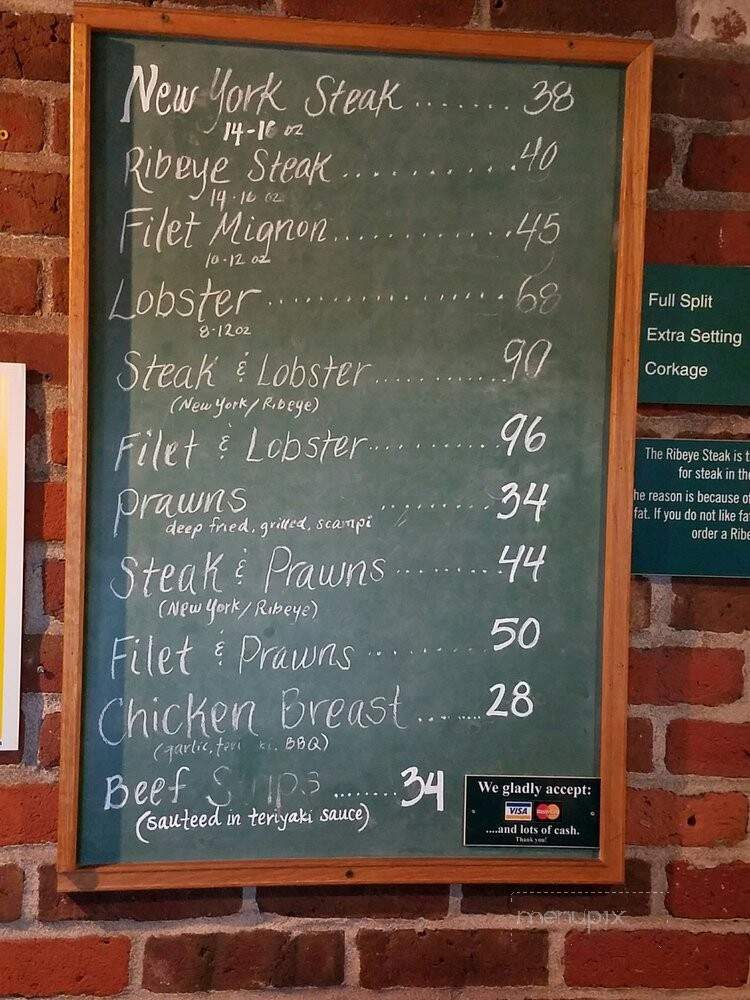 New York Steak ....... 38
14-16 oz
Ribeye Steak ........... 40
14-16 oz
Filet Mignon .............. 45
10-12 oz
Lobster .................... 68
8-12oz
Steak & Lobster ............ 90
(New York/Ribeye)
Filet & Lobster ........... 96
prawns .......... 34
deep fried, grilled, scampi
Steak & Prawns ......... 44
(New York/Ribeye)
Filet & Prawns ........ 50
Chicken Breast ....... 28
(garlic, teri ki, BBQ)
Beef ........ 34
(sauteed in teriyaki sauce)
We gladly accept:
VISA MasterCard
....and lots of cash.
Thank you!
Full Split
Extra Setting
Corkage
The Ribeye Steak is t
for steak in the
he reason is because of
fat. If you do not like fa
order a Ribe
menupix